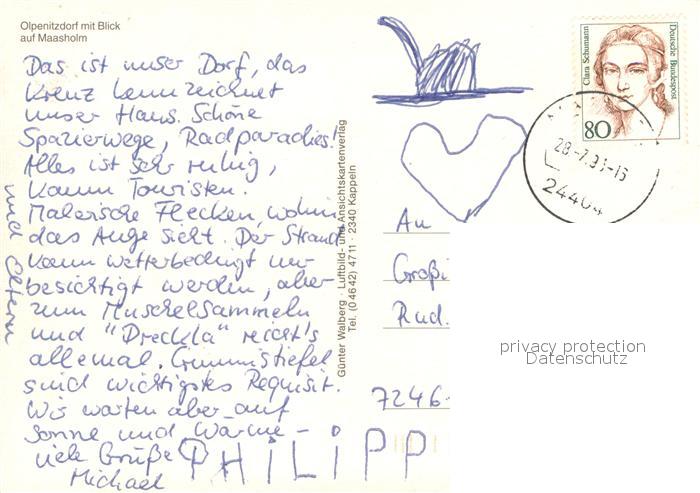 Olpenitzdorf mit Blick
auf Maasholm
Das ist unser Dorf, das
Kreuz kennzeichnet
unser Haus. Schöne
Spazierwege, Radparadies!
Alles ist sehr ruhig,
kaum Touristen.
Malerische Flecken, wohin
das Auge sieht. Der Strand
kann wetterbedingt nur
besichtigt werden, aber
zum Muschelsammeln
und "Dreckla" reicht's
allemal. Gummistiefel
sind wichtigstes Requisit.
Wir warten aber auf
Sonne und Wärme –
viele Grüße
Michael
PHiLiPP
und Eltern
Günter Walberg · Luftbild- und Ansichtskartenverlag
Tel. (04642) 4711 · 2340 Kappeln
Clara Schumann
Deutsche Bundespost
80
24404
An
Großi
Rud.
7246
privacy protection
Datenschutz